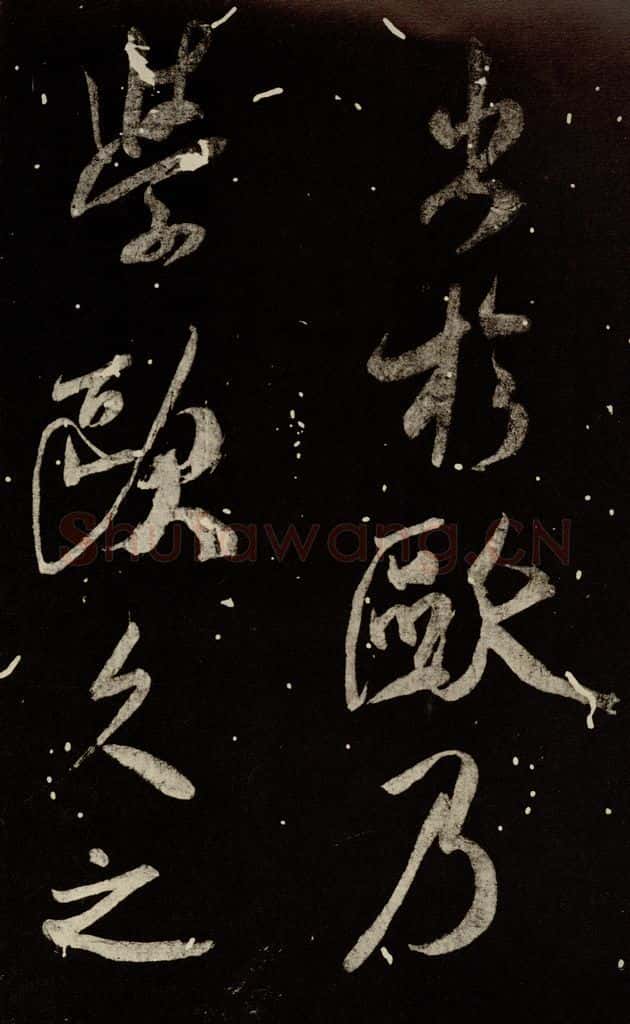 出於歐乃
學歐久之
Shufawang.CN